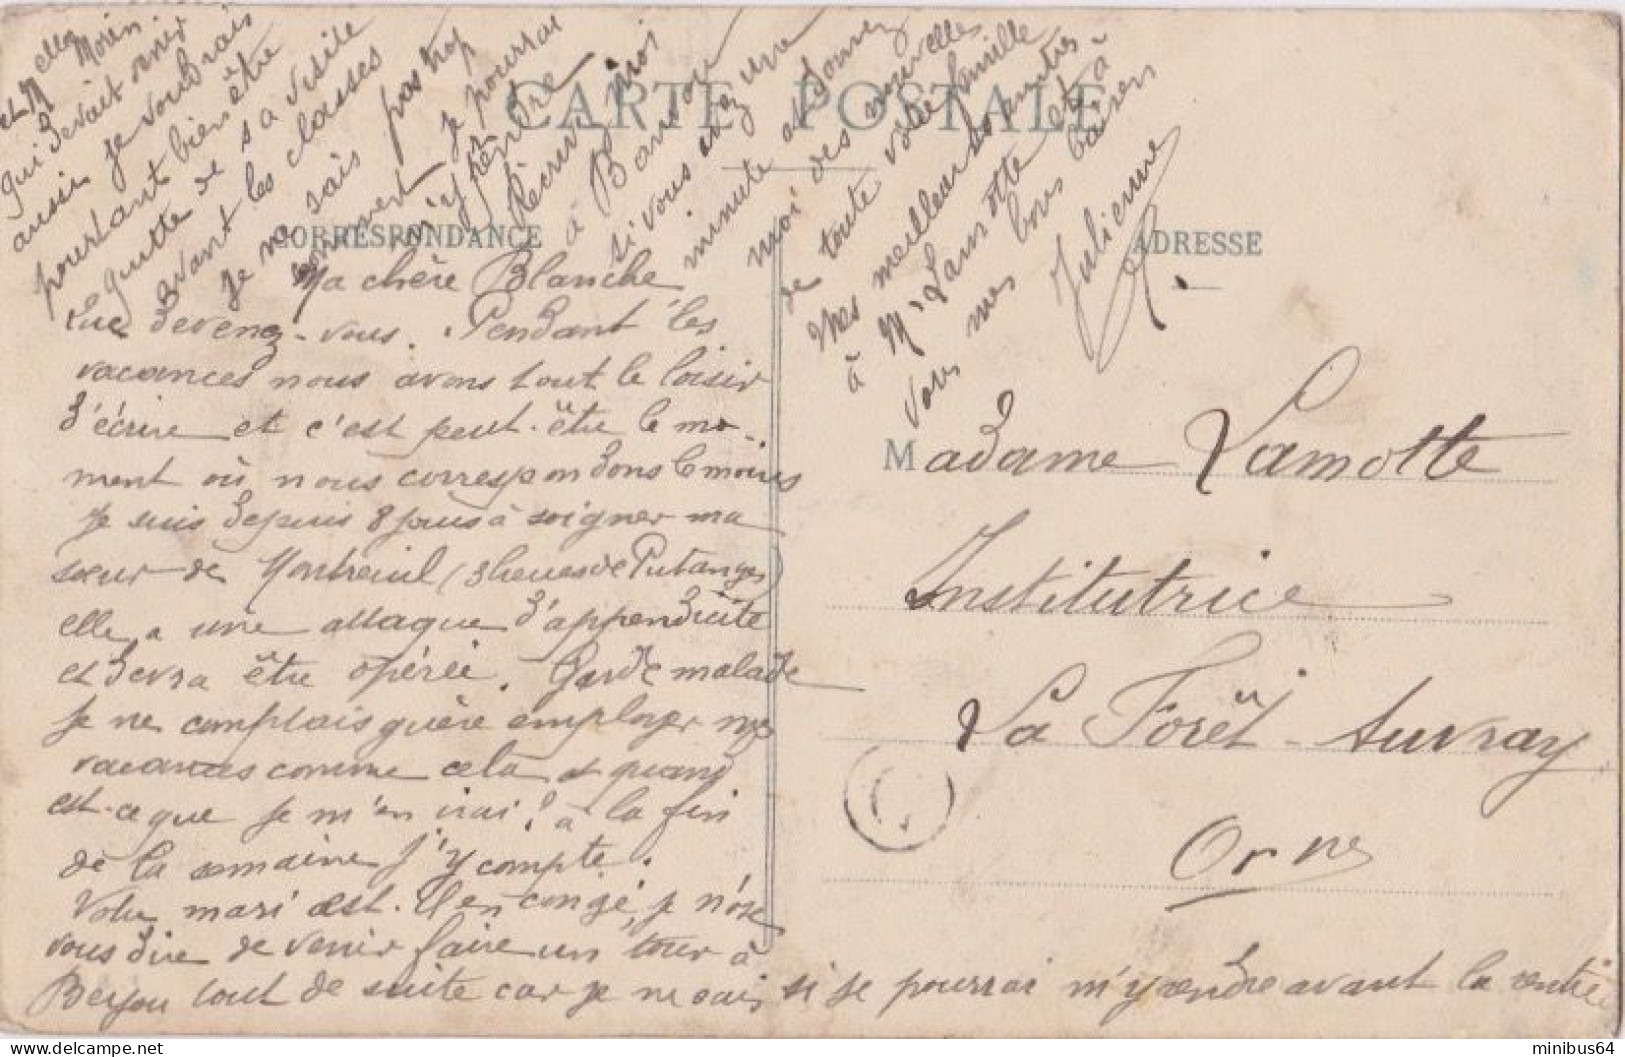 CARTE POSTALE
CORRESPONDANCE
ADRESSE
Ma chère Blanche
Que devenez-vous. Pendant les
vacances nous avons tout le loisir
d'écrire et c'est peut-être le mo-
ment où nous correspondons le moins
Je suis depuis 8 jours à soigner ma
sœur de Montreuil (3 lieues de Putanges)
elle a une attaque d'appendicite
et devra être opérée. Garde malade
je ne comptais guère employer mes
vacances comme cela et quand
est-ce que je m'en irai? à la fin
de la semaine j'y compte.
Votre mari est-il en congé, je n'ose
vous dire de venir faire un tour à
tout de suite car je ne sais si je pourrai m'y rendre avant la rentrée
et Melle Morin
qui devait venir
aussi je voudrais
pourtant bien être
quitte de sa visite
avant les classes
Je ne sais pas trop
comment je pourrai
m'y rendre
Récrivez moi
à
si vous avez une
minute et donnez
moi des nouvelles
de toute votre famille
Mes meilleurs
à Mr Lamotte et à
vous mes bons baisers
Julienne
Madame Lamotte
Institutrice
La Forêt-Auvray
Orne
minibus64